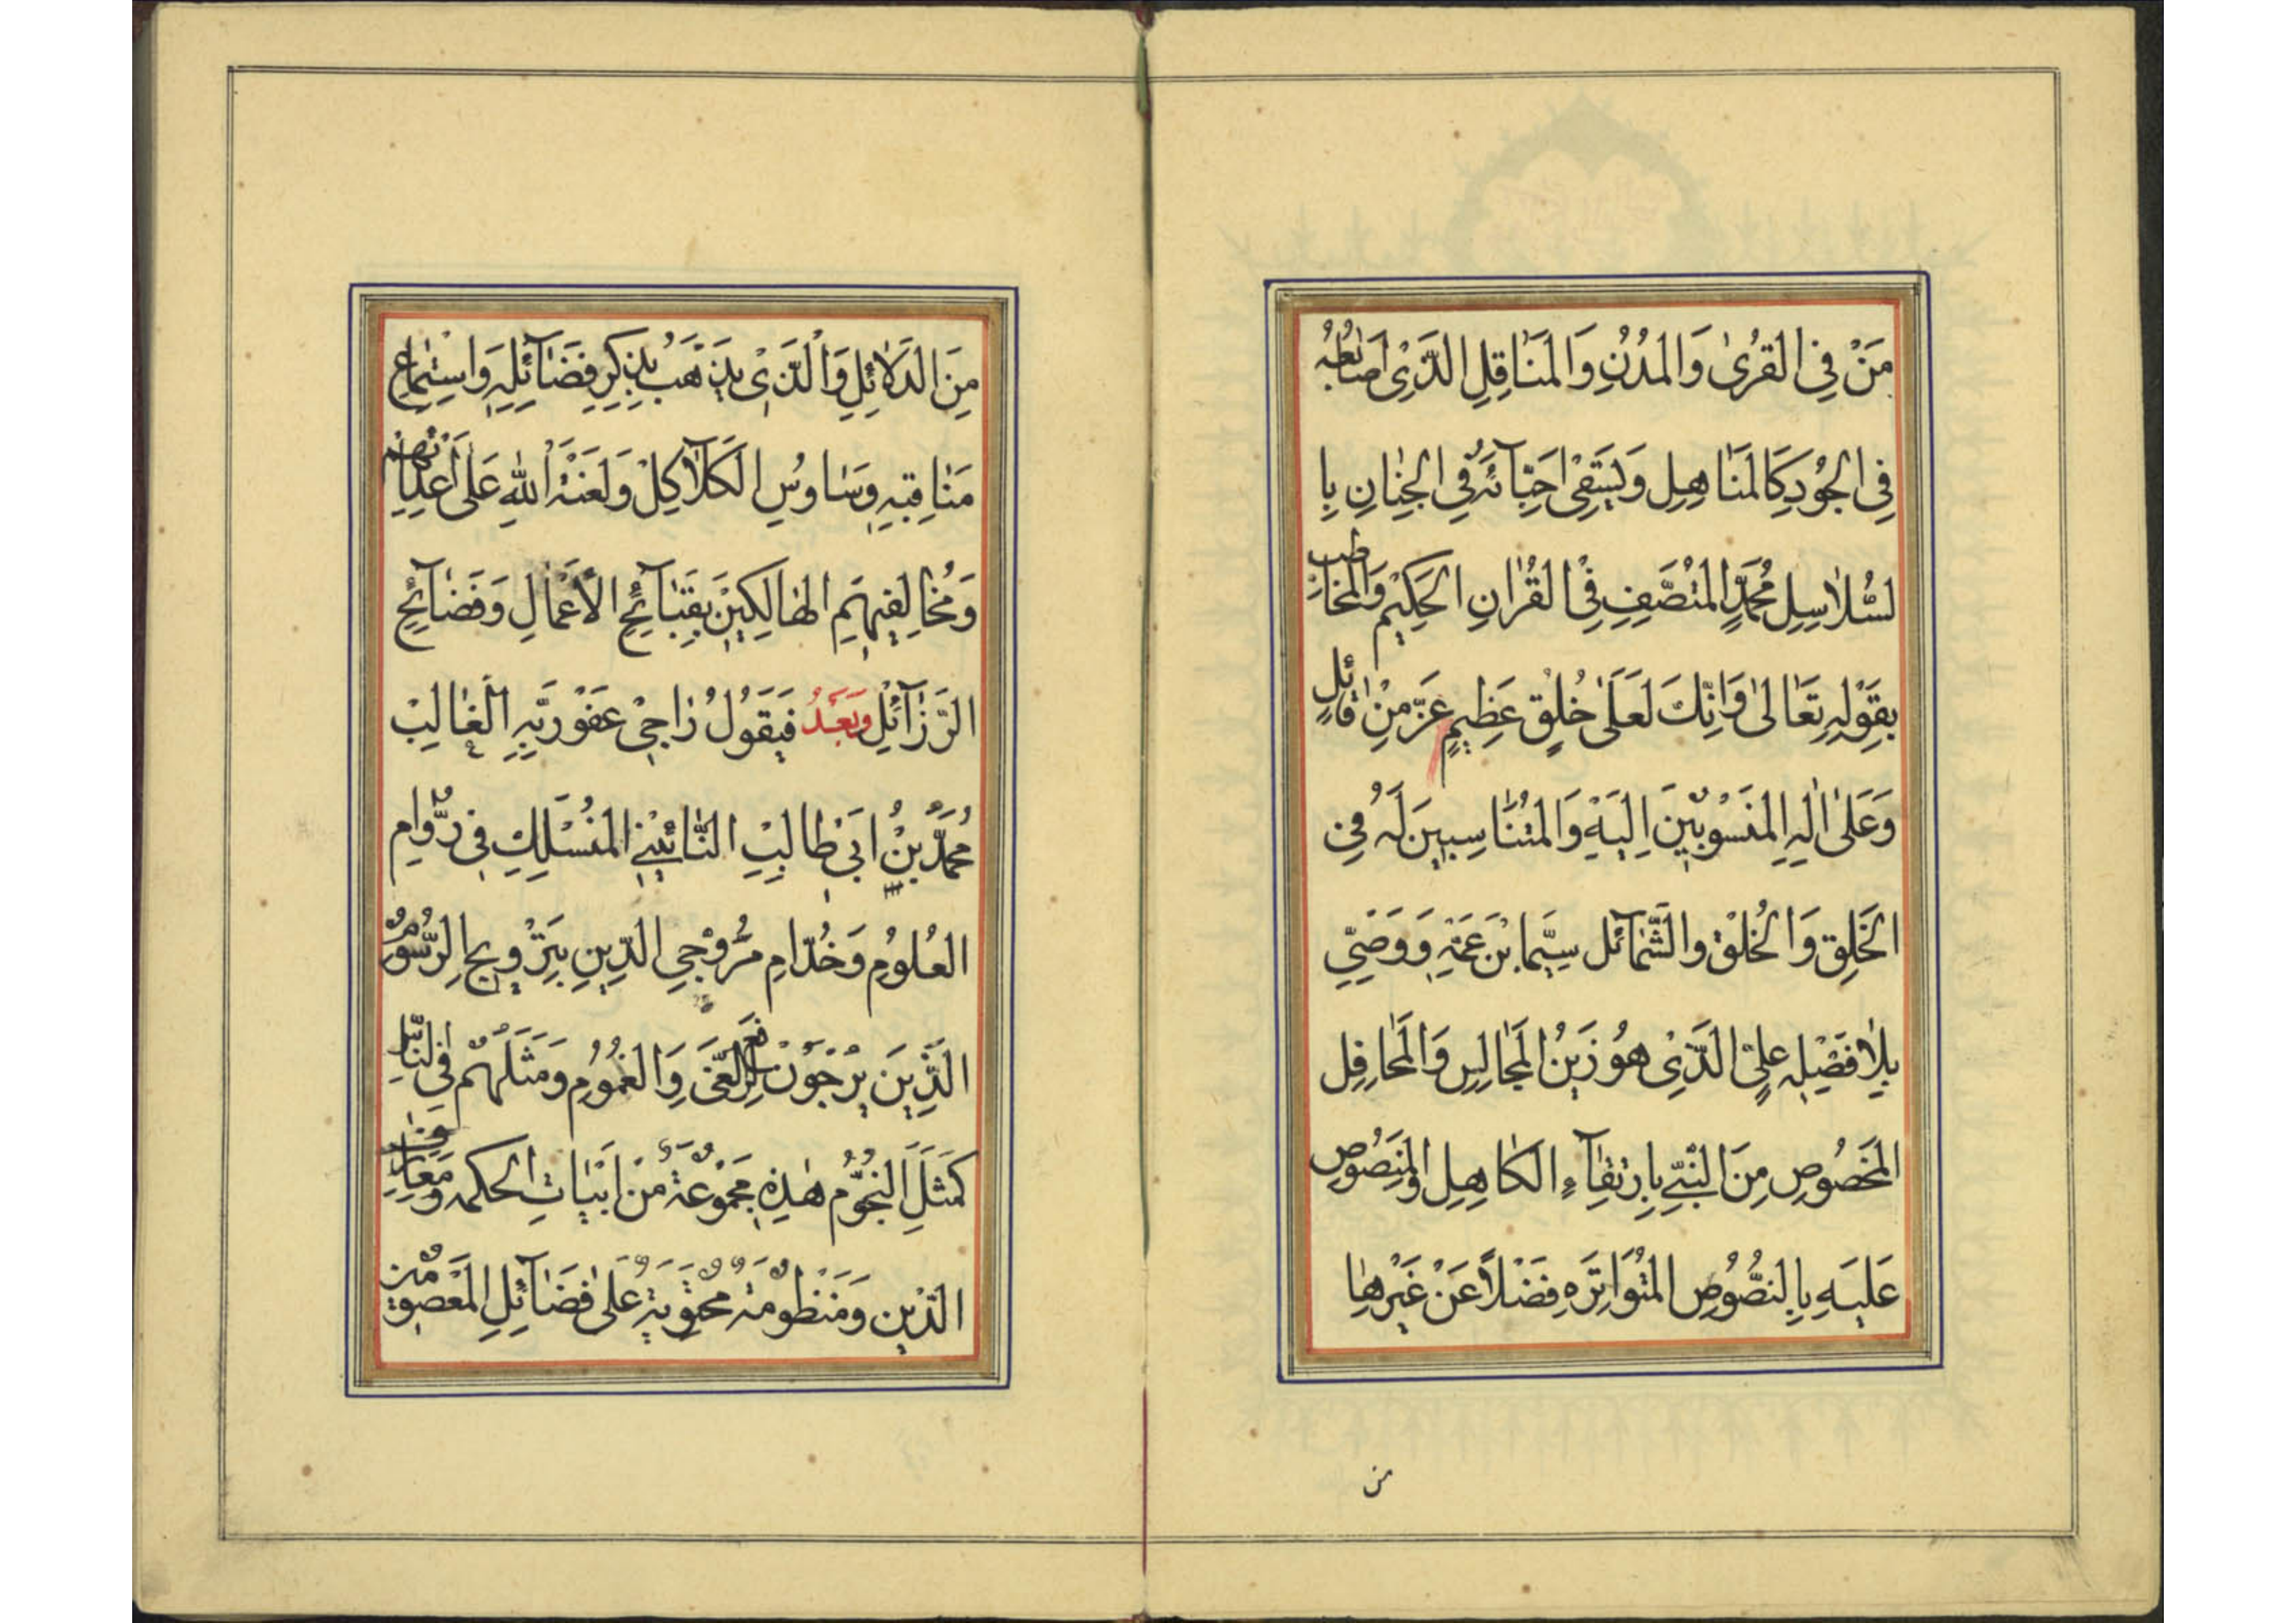 مَنْ فِی القُرىٰ وَالمُدُنِ وَالمَنٰاقِلِ الَّذِی اَصٰابِعُهُ
فِی الجُودِ كَالمَنٰاهِلِ وَیَسْقِیْ اَحِبّآئَهُ فِی الجِنٰانِ بِا
لسُّلاٰسِلِ مُحَمَّدٍ المُتَّصَفِ فِی القُرْاٰنِ الحَكیْمِ وَالمُخٰاطَبِ
بِقَوْلِهِ تَعٰالىٰ وَاِنَّكَ لَعَلىٰ خُلُقٍ عَظِیمٍ عَزَّ مِنْ قٰائِلٍ
وَعَلىٰ اٰلِهِ المَنْسُوبِیْنَ اِلَیْهِ وَالمُتَنٰاسِبِینَ لَهُ فِی
الخَلْقِ وَالخُلْقِ وَالشَّمٰآئل سِیَّما بْنَ عَمِّهِ وَوَصِیّی
بِلاٰ فَصْلِهِ عَلِیٍّ الَّذِیْ هُوَ زَیْنُ المَجٰالِسِ وَالمَحٰافِل
المَخصُوصِ مِنَ النَّبِیّ بِارْتِقٰآءِ الكٰاهِلِ وَالمَنصُوصِ
عَلَیهِ بِالنُّصُوصِ المُتَوٰاتِرَهِ فَضْلاً عَنْ غَیْرِهٰا
من
مِنَ الدَّلاٰئِلِ وَالَّذی یَذْهَبُ بِذِكْرِ فَضٰآئِلِهِ وَاسْتِمٰاعِ
مَنٰاقِبِهِ وَسٰاوُسِ الكَلاٰكِلْ وَلَعْنَةُ اللهِ عَلىٰ اَعْدٰائِهِمْ
وَمُخٰالِفِیهِمِ الهٰالِكِیْنَ بِقَبٰآئِحِ الأَعْمٰالِ وَفَضٰآئِحِ
الرَّزٰآئِلِ وَبَعْدُ فَیَقُولُ رٰاجِیْ عَفْوِ رَبِّهِ الغٰالِبْ
مُحَمَّدُ بْنُ اَبیْ طٰالِبِ النّٰائِیْنِی المُنْسَلِكِ فِی دُوّٰامِ
العُلُومِ وَخُدّامِ مُرَوِّجِی الدّینِ بِتَرْوِیجِ الرُّسُومِ
الَّذِینَ یَرْجُوْنَ رَفْعَ الغَیِّ وَالغُمُومِ وَمَثَلُهُمْ فِی النّٰاسِ
كَمَثَلِ النُّجُومِ هٰذِهِ مَجْمُوعَةٌ مِنْ اَبْیٰاتِ الحكمه وَمَعٰارِفِ
الدّینِ وَمَنْظُومَةٌ مُحْتَوِیَةٌ عَلىٰ فَضٰآئِلِ المَعْصُومینَ